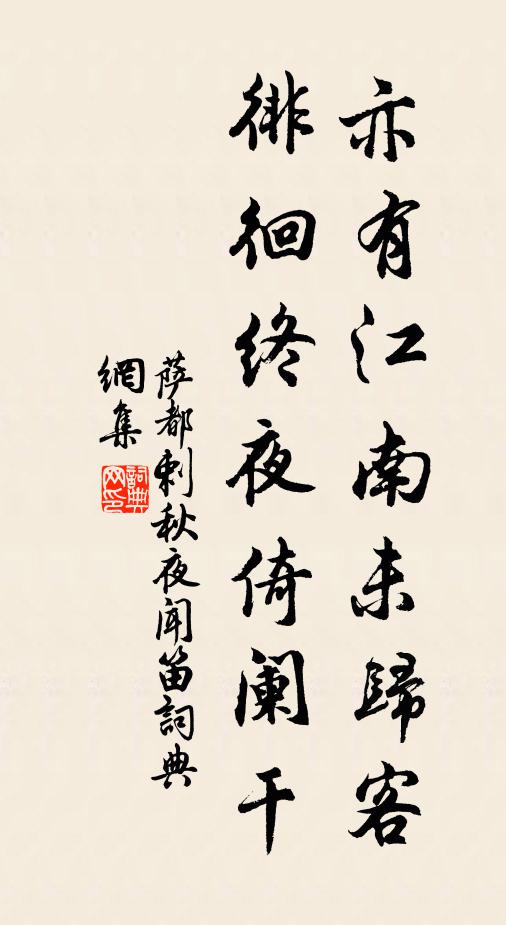 亦有江南未歸客
徘徊終夜倚闌干
萨都剌秋夜聞笛詞典
網集
詞典
网印